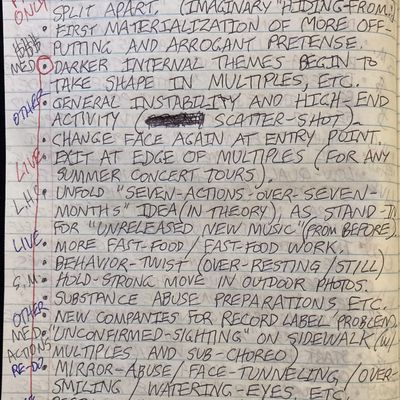 ONLY
SPLIT APART. (IMAGINARY "HIDING-FROM.")
• FIRST MATERIALIZATION OF MORE OFF-
PUTTING AND ARROGANT PRETENSE.
MED. • DARKER INTERNAL THEMES BEGIN TO
TAKE SHAPE IN MULTIPLES, ETC.
OTHER • GENERAL INSTABILITY AND HIGH-END
ACTIVITY ( SCATTER-SHOT).
• CHANGE FACE AGAIN AT ENTRY POINT.
LIVE • EXIT AT EDGE OF MULTIPLES (FOR ANY
SUMMER CONCERT TOURS).
L.H. • UNFOLD "SEVEN-ACTIONS-OVER-SEVEN-
MONTHS" IDEA (IN THEORY), AS STAND-IN
FOR "UNRELEASED NEW MUSIC" (FROM BEFORE).
LIVE • MORE FAST-FOOD / FAST-FOOD WORK.
• BEHAVIOR-TWIST (OVER-RESTING / STILL)
S.M. • HOLD-STRONG MOVE IN OUTDOOR PHOTOS.
• SUBSTANCE ABUSE PREPARATIONS ETC.
OTHER • NEW COMPANIES FOR RECORD LABEL PROBLEM.
MED. • "UNCONFIRMED-SIGHTING" ON SIDEWALK (W/
ACTIONS MULTIPLES AND SUB-CHOREO)
RE-DO • MIRROR-ABUSE / FACE-TUNNELING / OVER-
SMILING / WATERING-EYES, ETC.